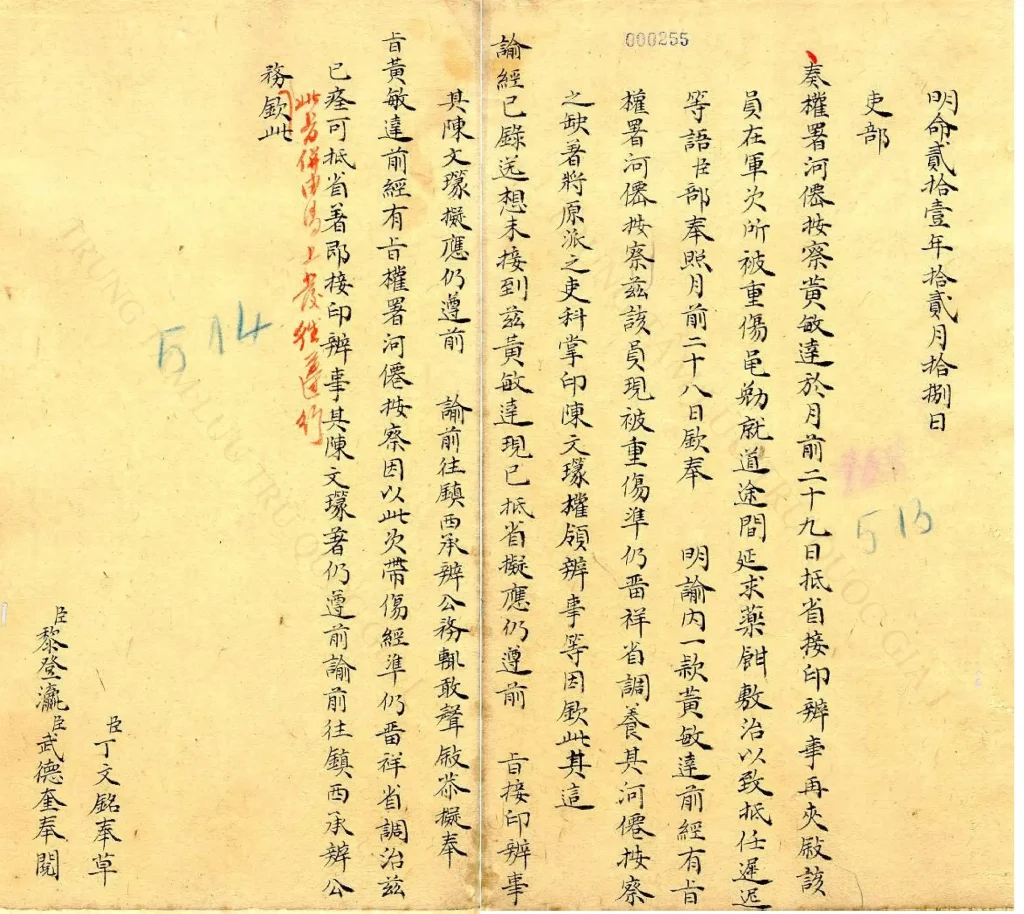 000255
明命貳拾壹年拾貳月拾捌日
吏部
奏權署河僊按察黃敏達於月前二十九日抵省接印辦事再夾敍該
員在軍次所被重傷黽勉就道途間延求藥餌敷治以致抵任遲迟
等語臣部奉照月前二十八日欽奉 明諭內一款黃敏達前經有旨
權署河僊按察茲該員現被重傷準仍畱祥省調養其河僊按察
之缺著將原派之吏科掌印陳文璖權領辦事等因欽此其這
諭經已錄送想未接到茲黃敏達現已抵省擬應仍遵前 旨接印辦事
其陳文璖擬應仍遵前 諭前往鎮西承辦公務輒敢聲敍恭擬奉
旨黃敏達前經有旨權署河僊按察因以此次帶傷經準仍畱祥省調治茲
已痊可抵省著即接印辦事其陳文璖著仍遵前諭前往鎮西承辦公
務欽此
此旨併由馬上發往遵行
臣丁文銘奉草
臣黎登瀛臣武德奎奉閱
513
514